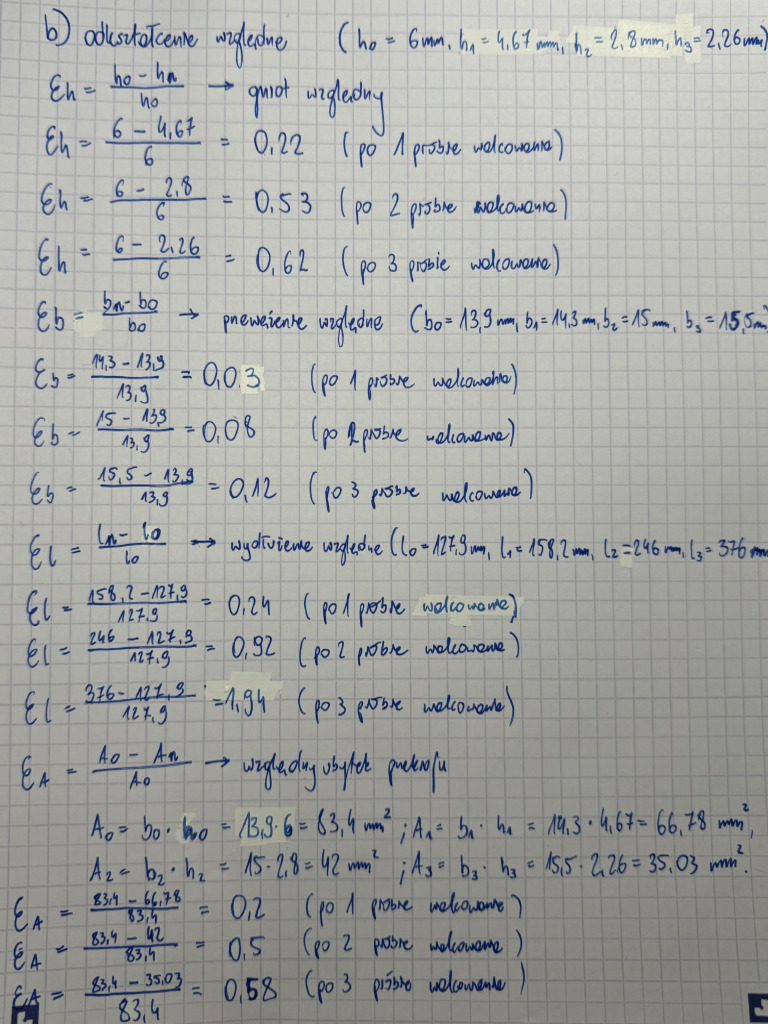 b) odkształcenie względne (h₀ = 6mm, h₁ = 4,67 mm, h₂ = 2,8mm, h₃ = 2,26mm)
εh = (h₀ - hₙ)/h₀ → gniot względny
εh = (6 - 4,67)/6 = 0,22 (po 1 próbie walcowania)
εh = (6 - 2,8)/6 = 0,53 (po 2 próbie walcowania)
εh = (6 - 2,26)/6 = 0,62 (po 3 próbie walcowania)
εb = (bₙ - b₀)/b₀ → poszerzenie względne (b₀ = 13,9 mm, b₁ = 14,3 mm, b₂ = 15 mm, b₃ = 15,5m
εb = (14,3 - 13,9)/13,9 = 0,03 (po 1 próbie walcowania)
εb = (15 - 13,9)/13,9 = 0,08 (po 2 próbie walcowania)
εb = (15,5 - 13,9)/13,9 = 0,12 (po 3 próbie walcowania)
εl = (lₙ - l₀)/l₀ → wydłużenie względne (l₀ = 127,9 mm, l₁ = 158,2 mm, l₂ = 246 mm, l₃ = 376 mm
εl = (158,2 - 127,9)/127,9 = 0,24 (po 1 próbie walcowania)
εl = (246 - 127,9)/127,9 = 0,92 (po 2 próbie walcowania)
εl = (376 - 127,9)/127,9 = 1,94 (po 3 próbie walcowania)
εA = (A₀ - Aₙ)/A₀ → względny ubytek przekroju
A₀ = b₀ · h₀ = 13,9 · 6 = 83,4 mm² ; A₁ = b₁ · h₁ = 14,3 · 4,67 = 66,78 mm²,
A₂ = b₂ · h₂ = 15 · 2,8 = 42 mm² ; A₃ = b₃ · h₃ = 15,5 · 2,26 = 35,03 mm².
εA = (83,4 - 66,78)/83,4 = 0,2 (po 1 próbie walcowania)
εA = (83,4 - 42)/83,4 = 0,5 (po 2 próbie walcowania)
εA = (83,4 - 35,03)/83,4 = 0,58 (po 3 próbie walcowania)